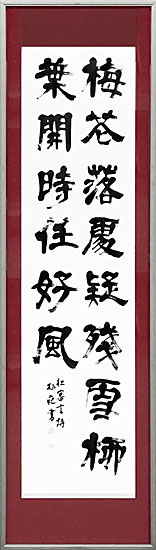 梅花落處疑殘雪柳
葉開時任好風
杜審言詩
書